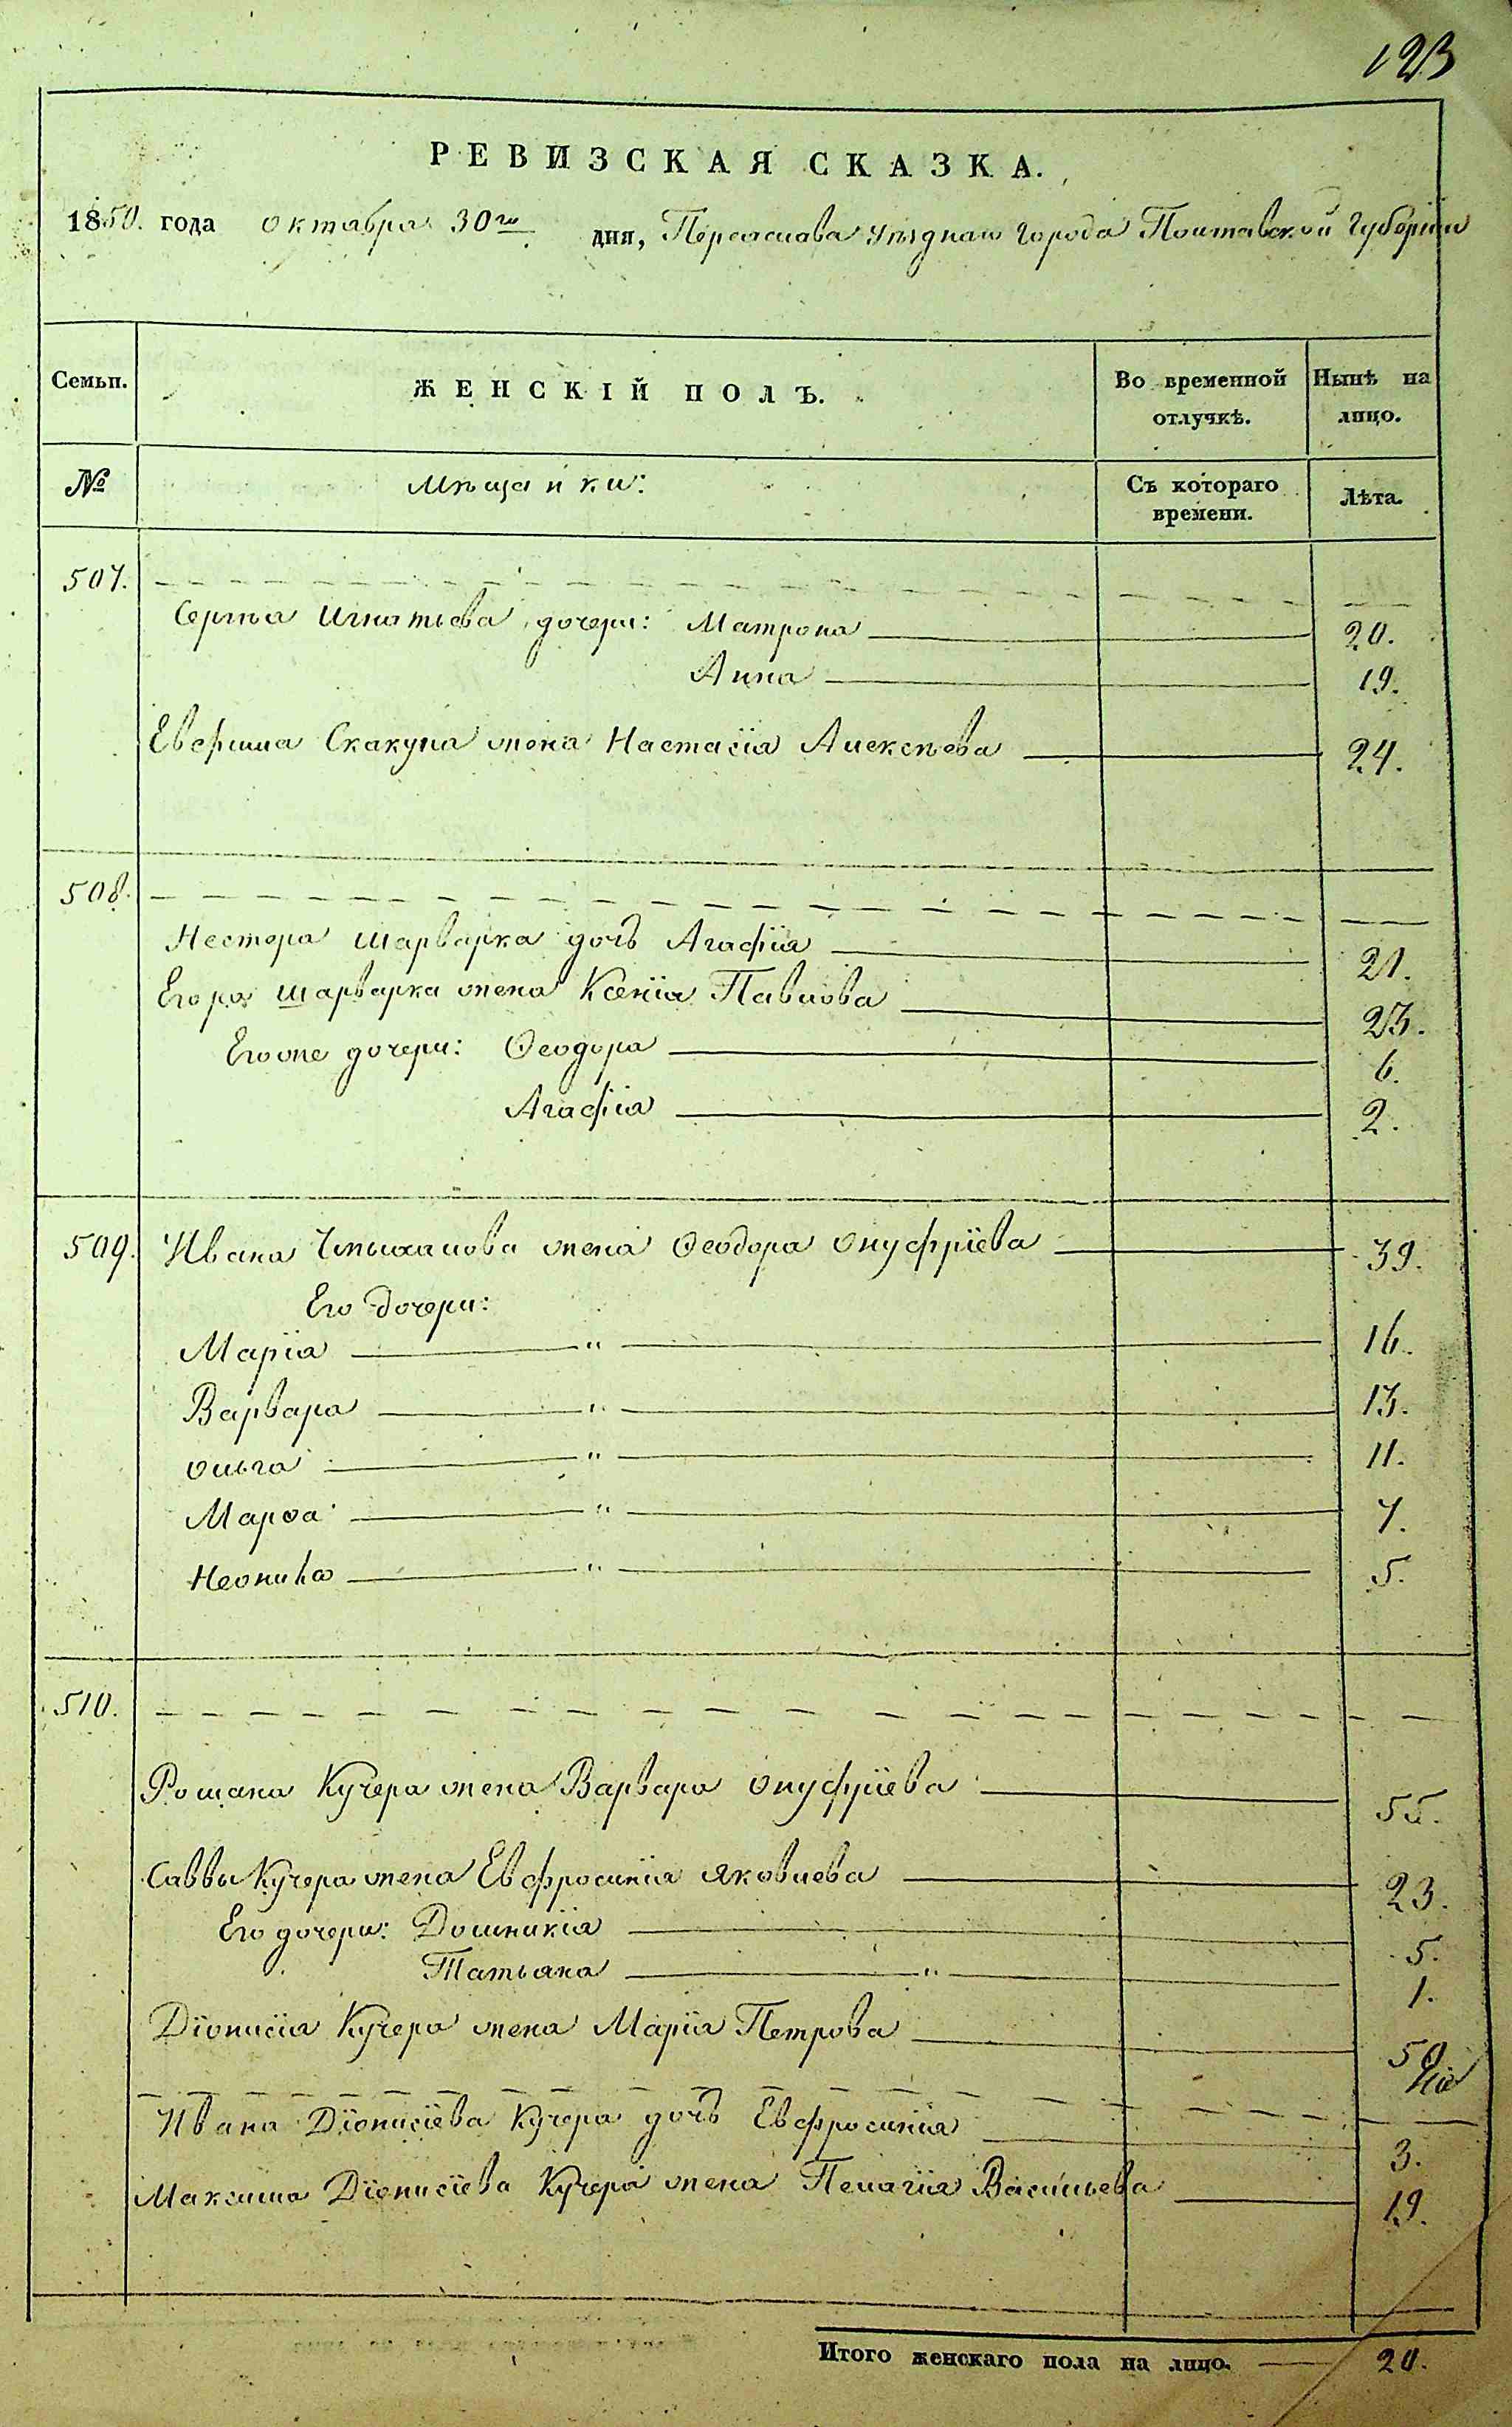 123
РЕВИЗСКАЯ СКАЗКА.
1850. года октября 30го дня, Переяслава уѣзднаго города Полтавской Губерніи
Семьи. ЖЕНСКІЙ ПОЛЪ. Во временной отлучкѣ. Нынѣ на лицо.
№ Мѣщанки: Съ котораго времени. Лѣта.
507.
Сергѣя Игнатьева дочери: Матрона 20.
Анна 19.
Евфима Скакуна жена Настасія Алексѣева 24.
508.
Нестера Шарварка дочь Агафія 21.
Егора Шарварка жена Ксенія Павлова 23.
Егоже дочери: Ѳеодора 6.
Агафія 2.
509. Ивана жена Ѳеодора Онуфріева 39.
Его дочери:
Марія " 16.
Варвара " 13.
Ольга " 11.
Марѳа " 7.
Неонила " 5.
510.
Романа Кучера жена Варвара Онуфріева 55.
Саввы Кучера жена Евфросинія Яковлева 23.
Его дочери: Домникія 5.
Татьяна " 1.
Діонисія Кучера жена Марія Петрова 50
Ивана Діонисіева Кучера дочь Евфросинія 3.
Максима Діонисіева Кучера жена Пелагія Васильева 19.
Итого женскаго пола на лицо. 20.